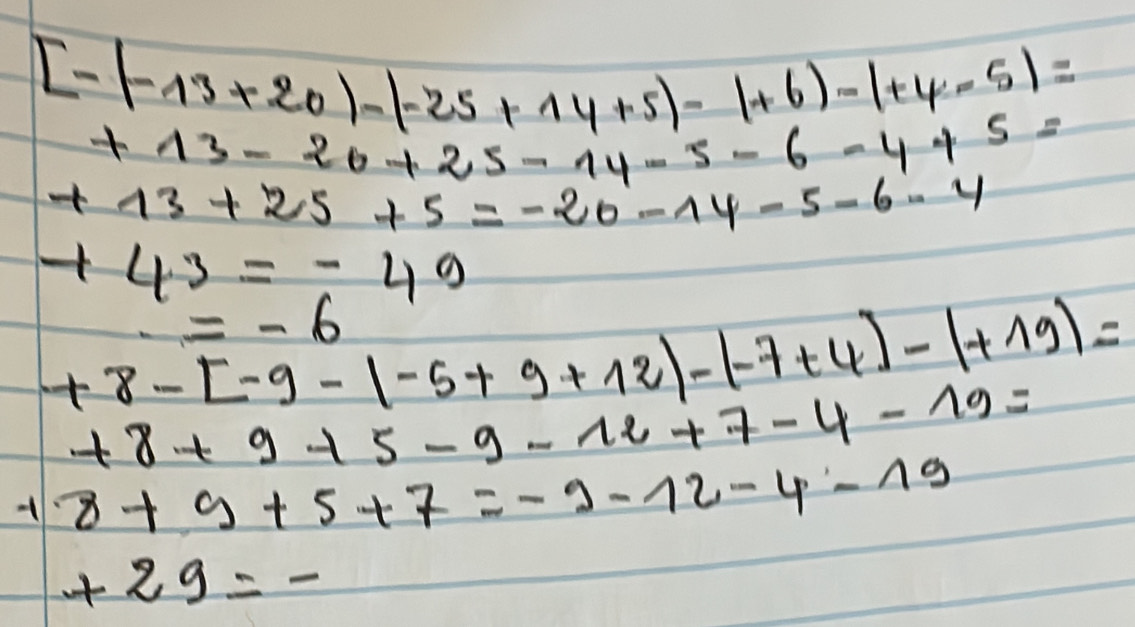 [-(-13+20)-(-25+14+5)-(+6)-(+4-5)=
+13-20+25-14-5-6-4+5=
+13+25+5=-20-14-5-6-4
+43=-49
=-6
+8-[-9-(-5+9+12)-(-7+4]-(+19)=
+8+9+5-9-12+7-4-19=
+8+9+5+7=-9-12-4-19
+29=-